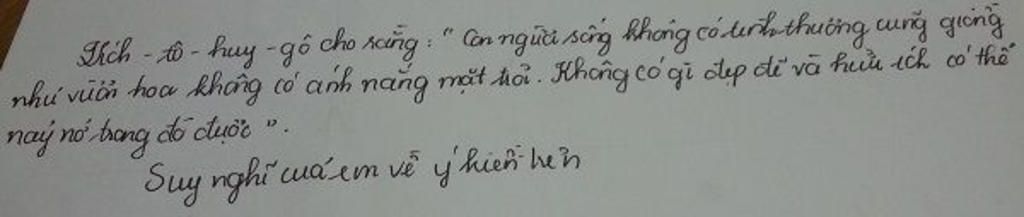 Ích - tô - huy - gô cho rằng : " Con người sống không có tình thương cũng giống
như vườn hoa không có ánh nắng mặt trời . Không có gì đẹp đẽ và hữu ích có thể
nảy nở trong đó được ".
Suy nghĩ của em về ý kiến trên